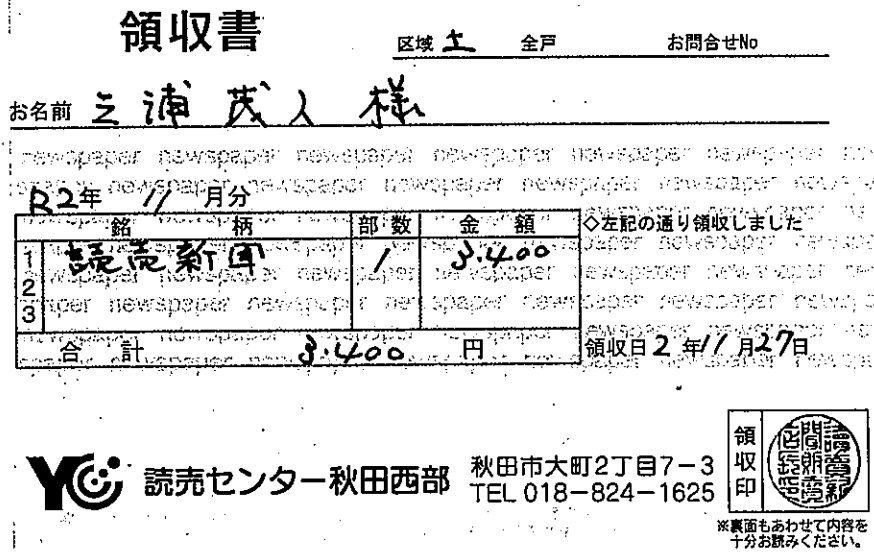 領収書
区域 土 全戸 お問合せNo
お名前 三浦 茂人 様
R2年 11 月分
銘柄 部数 金額 ◇左記の通り領収しました
1 読売新聞 1 3.400
2
3
合計 3.400 円 領収日 2 年 11 月 27日
YC 読売センター秋田西部 秋田市大町2丁目7-3
TEL 018-824-1625
領収印
※裏面もあわせて内容を
十分お読みください。